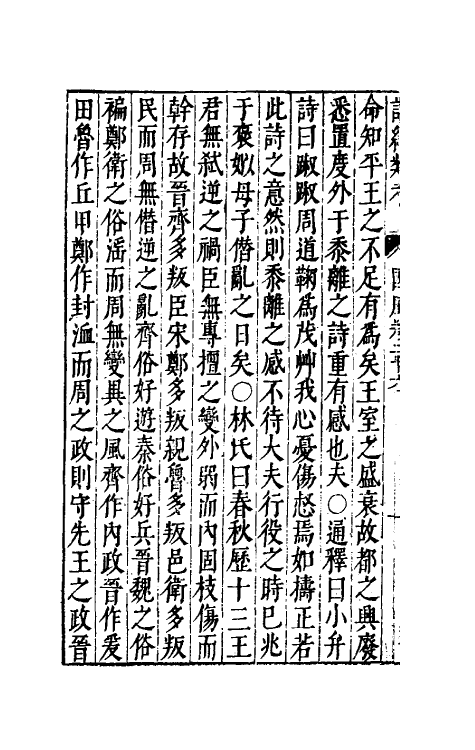 命知平王之不足有為矣王室之盛衰故都之興廢
悉置度外于黍離之詩重有感也夫○通釋曰小弁
詩曰踧踧周道鞠為茂艸我心憂傷惄焉如擣正若
此詩之意然則黍離之感不待大夫行役之時已兆
于褒姒母子僭亂之日矣○林氏曰春秋歷十三王
君無弒逆之禍臣無專擅之變外弱而內固枝傷而
幹存故晉齊多叛臣宋鄭多叛親魯多叛邑衛多叛
民而周無僭逆之亂齊俗好遊秦俗好兵晉魏之俗
褊鄭衛之俗淫而周無變異之風齊作內政晉作爰
田魯作丘甲鄭作封洫而周之政則守先王之政晉